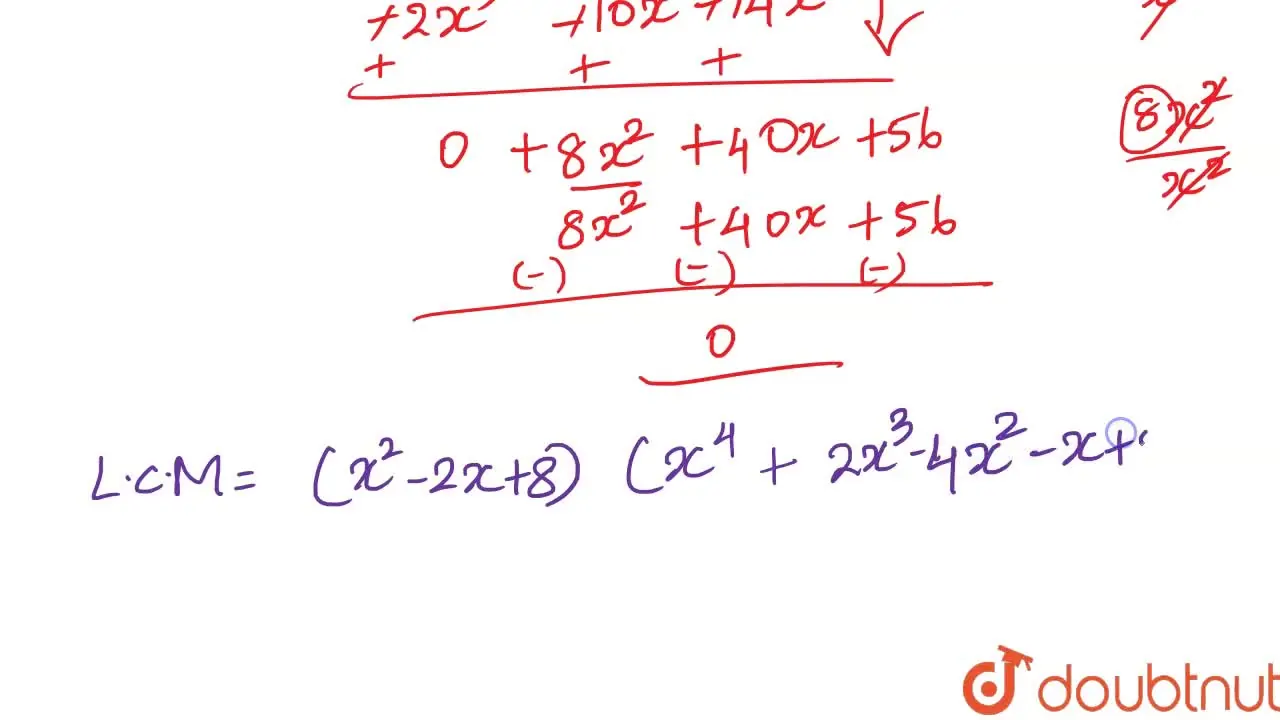 +2x³ +10x² +14x
+ + +
0 +8x² +40x +56
8x² +40x +56
(-) (-) (-)
0
8x²
x²
L.C.M = (x² -2x+8) (x⁴ + 2x³ -4x² -x+
doubtnut